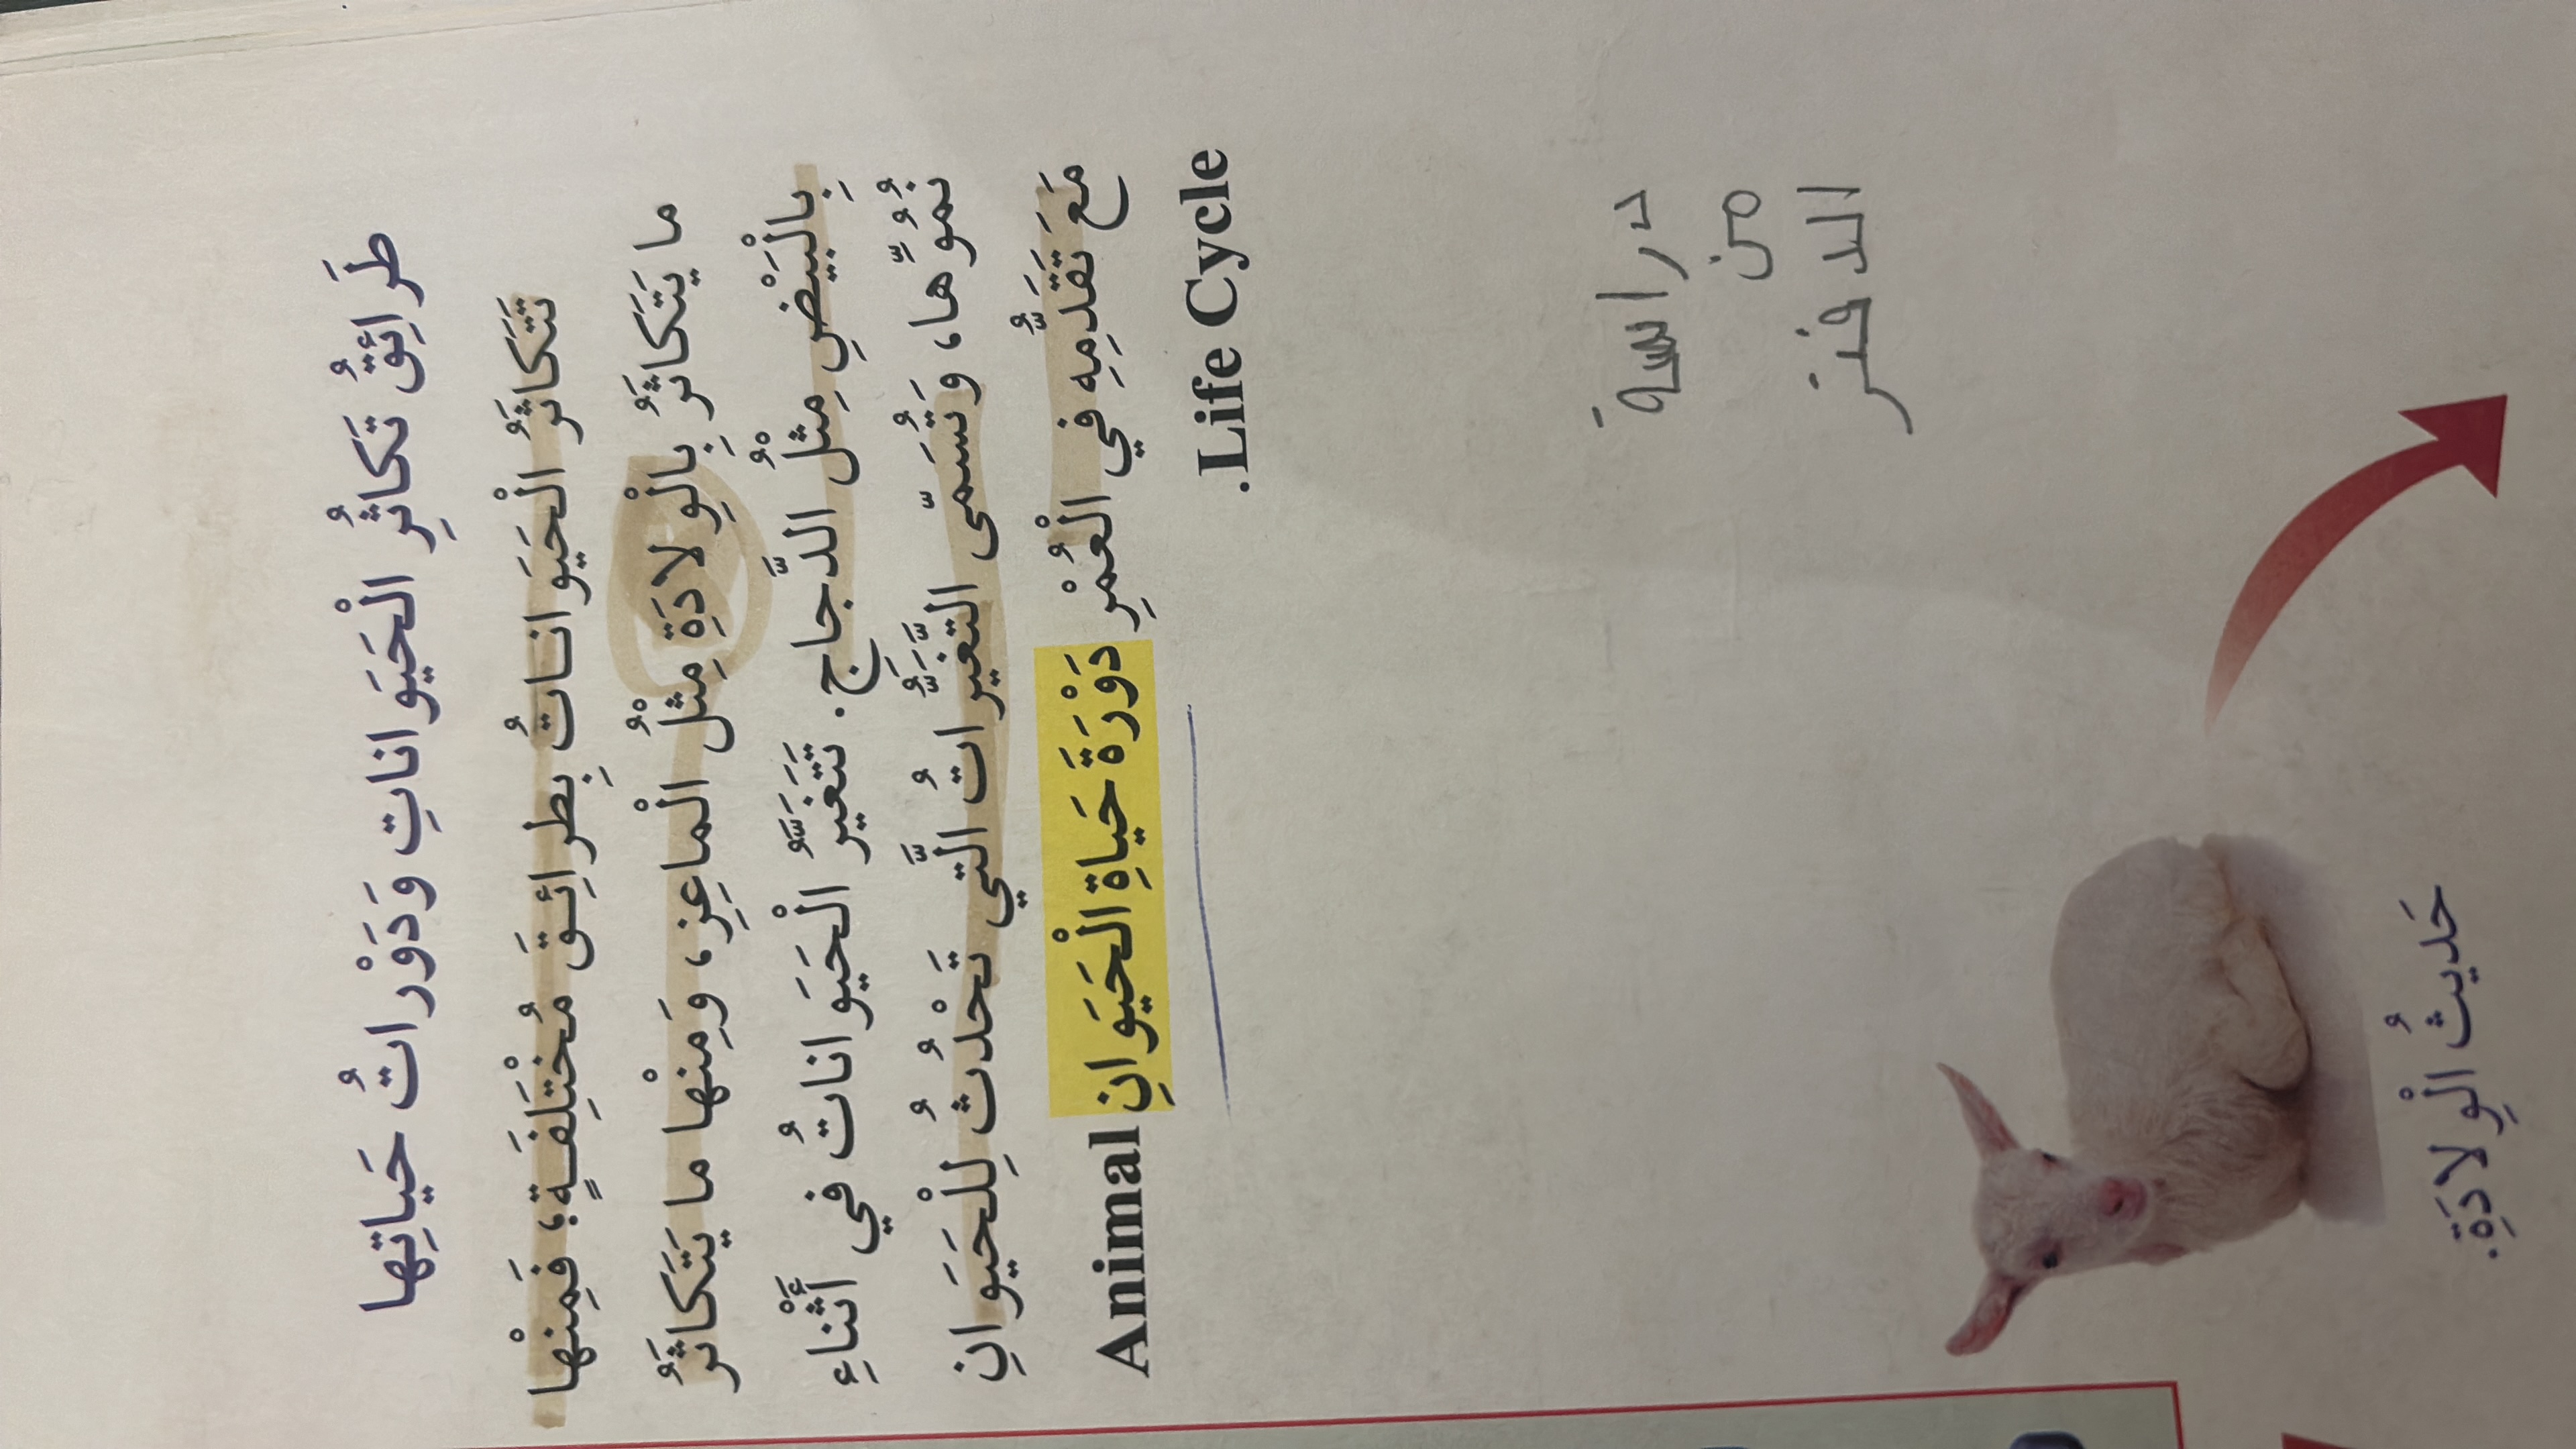 طَرائِقُ تَكاثُرِ الْحَيَواناتِ وَدَوْراتُ حَياتِها
تَتَكاثَرُ الْحَيَواناتُ بِطرائِقَ مُخْتَلِفَةٍ؛ فَمِنْها
ما يَتَكاثَرُ بِالْوِلادَةِ مِثْلُ الْماعِزِ، وَمِنْها ما يَتَكاثَرُ
بِالْبَيْضِ مِثْلُ الدَّجاجِ. تَتَغَيَّرُ الْحَيَواناتُ في أَثْناءِ
نُمُوِّها، وَتُسَمّى التَّغَيُّراتُ الَّتي تَحْدُثُ لِلْحَيَوانِ
مَعَ تَقَدُّمِهِ في الْعُمْرِ دَوْرَةَ حَياةِ الْحَيَوانِ Animal
Life Cycle.
دراسة
من
الدفتر
حَديثُ الْوِلادَةِ.